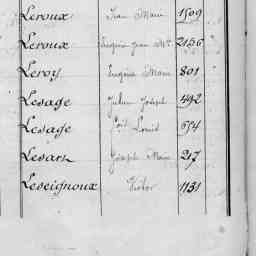 Leroux Jean Marie 1509
Leroux Eugène Jean Mie 2156
Leroy Eugène Marie 801
Lesage Julien Joseph 492
Lesage Louis 654
Lesark Joseph Marie 217
Leseignoux Victor 1131